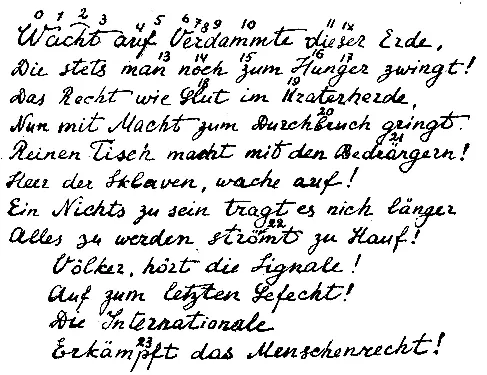 0 1 2 3 4 5 6 7 8 9 10 11 12
Wacht auf Verdammte dieser Erde,
13 14 15 16 17
Die stets man noch zum Hunger zwingt!
18 19
Das Recht wie Glut im Kraterherde,
20
Nun mit Macht zum Durchbruch gringt.
21
Reinen Tisch macht mit den Bedrängern!
Heer der Sklaven, wache auf!
Ein Nichts zu sein tragt es nich länger
22
Alles zu werden strömt zu Hauf!
Völker, hört die Signale!
Auf zum letzten Gefecht!
Die Internationale
23
Erkämpft das Menschenrecht!